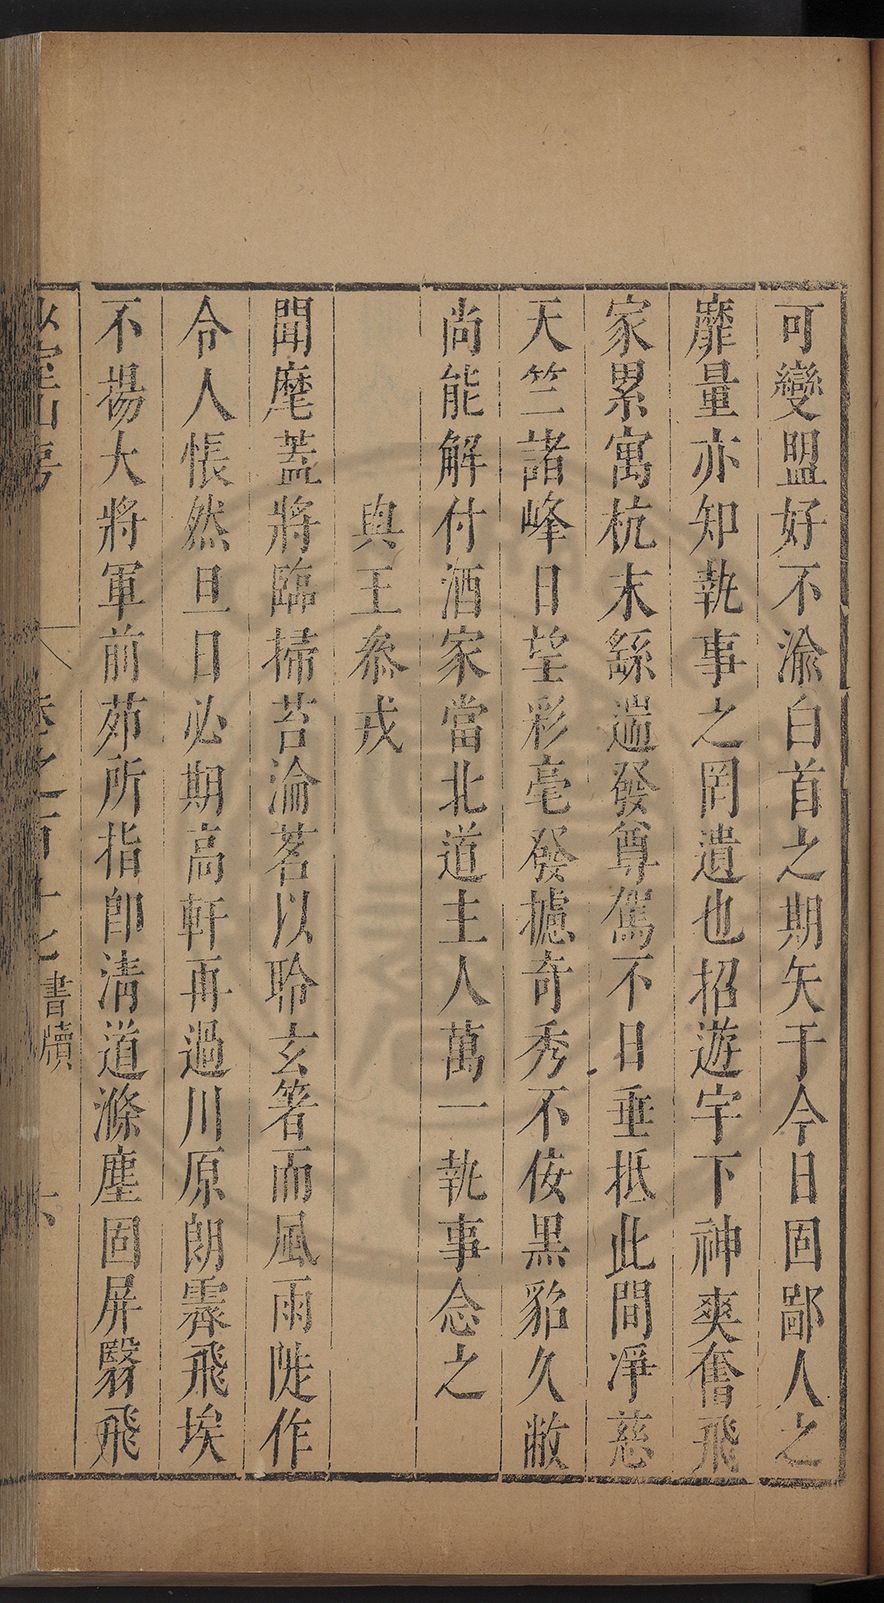 可變盟好不渝白首之期矢于今日固鄙人之
靡量亦知執事之罔遺也招遊宇下神爽奮飛
家累寓杭末繇遄發尊駕不日垂抵此間淨慈
天竺諸峰日望彩毫發攄奇秀不佞黑貂久敝
尚能解付酒家當北道主人萬一執事念之
與王參戎
聞麾蓋將臨掃苔瀹茗以聆玄箸而風雨陡作
令人悵然旦日必期高軒再過川原朗霽飛埃
不揚大將軍前茆所指卽淸道滌塵固屏翳飛
少室山房 卷之百十七 書牘 六